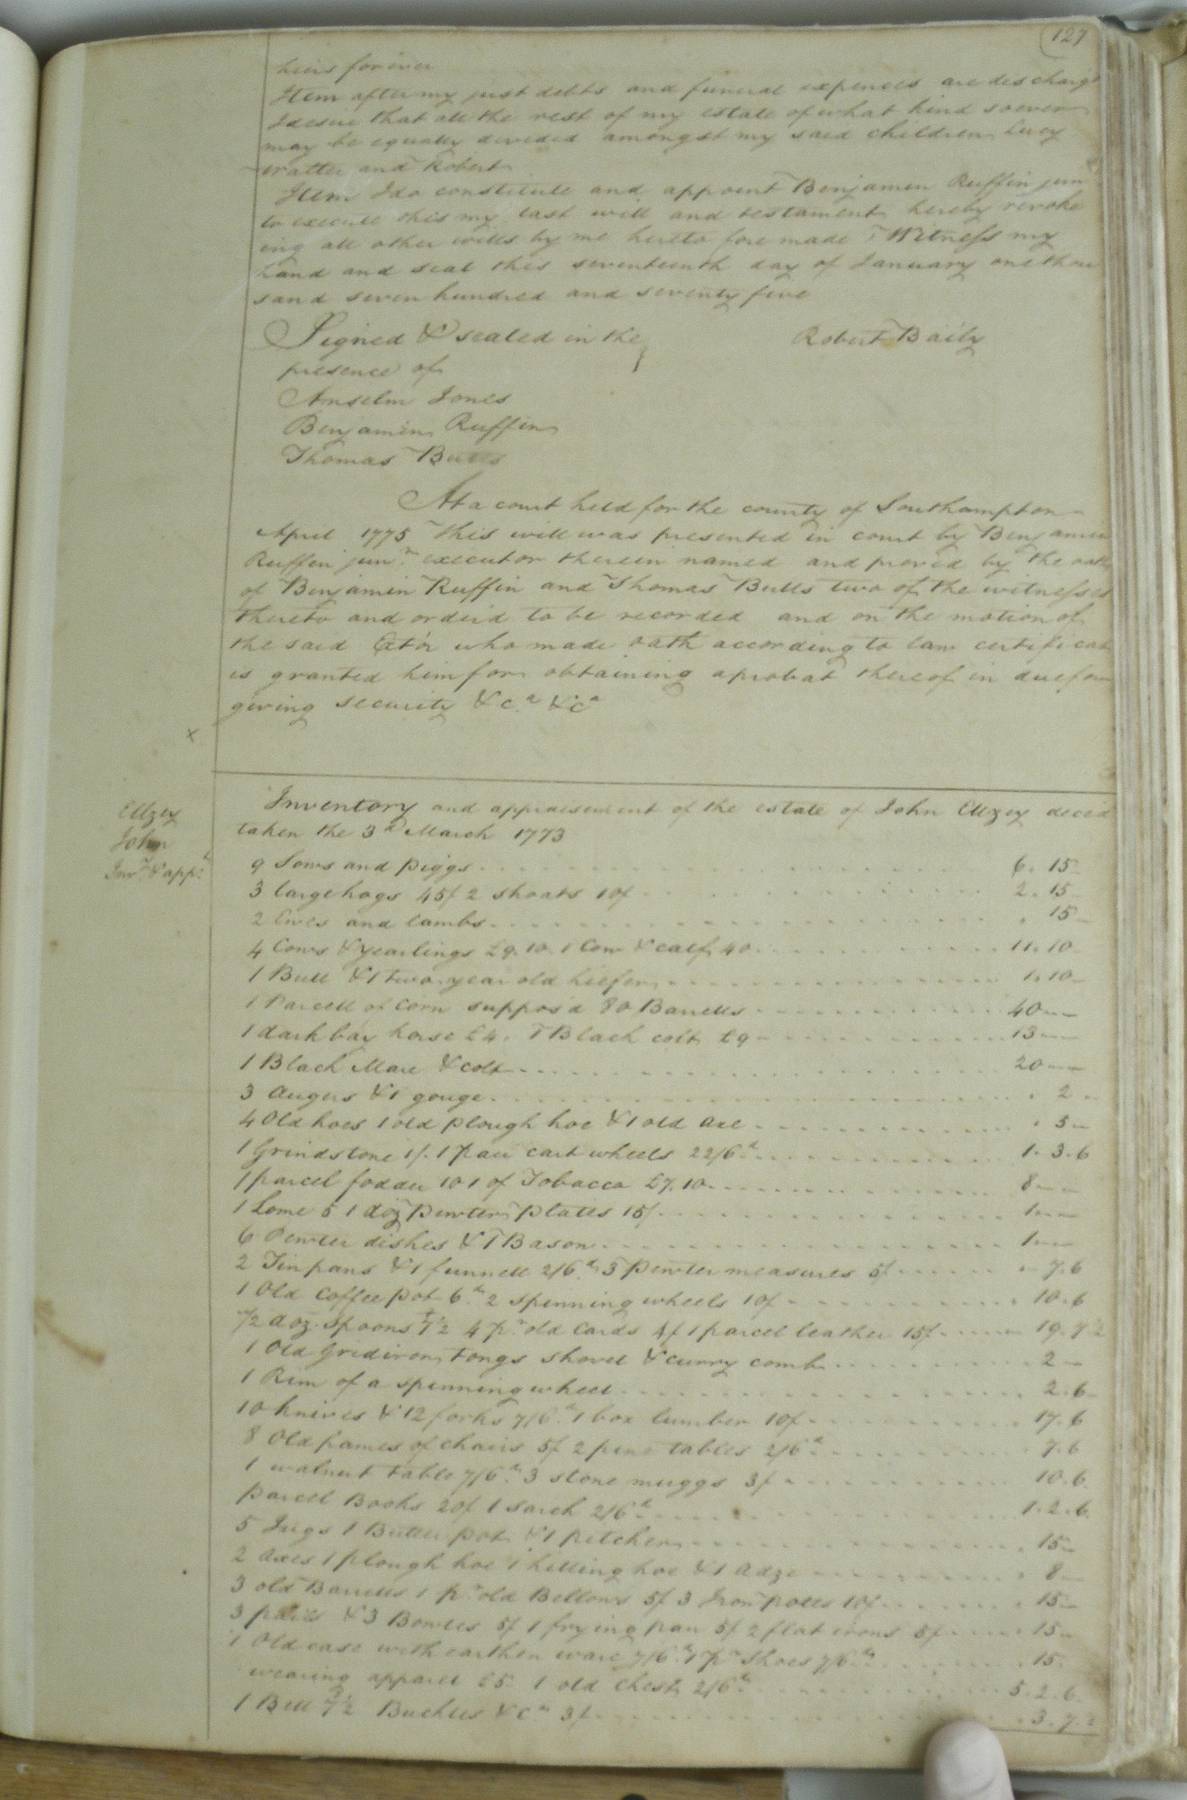 127
heirs forever
Item after my just debts and funeral expences are discharg'd
I desire that all the rest of my estate of what kind soever
may be equally divided amongst my said children Lucy
and Robert
Item I do constitute and appoint Benjamin Ruffin jun
to execute this my last will and testament hereby revoke
ing all other wills by me hereto fore made Witness my
hand and seal this seventeenth day of January one thou
sand seven hundred and seventy five
Signed & sealed in the } Robert Baily
presence of
Anselm Jones
Benjamin Ruffin
Thomas Butts
At a court held for the county of Southampton
April 1775 This will was presented in court by Benjamin
Ruffin junr. executor therein named and proved by the oath
of Benjamin Ruffin and Thomas Butts two of the witnesses
thereto and order'd to be recorded and on the motion of
the said Exto'r who made oath according to law certificate
is granted him for obtaining a probat thereof in due form
giving security &c.a &ca
x
Ellzey
John
Invy. & appt.
Inventory and appraisement of the estate of John Ellzey deced
taken the 3d March 1773
9 Sows and piggs 6. 15
3 large hogs 45/ 2 shoats 10/ 2. 15
2 Ewes and lambs . 15
4 Cows & yearlings £9.10. 1 Cow & calf 40 11. 10
1 Bull & 1 two year old heifer 1. 10
1 Parcell of Corn suppos'd 80 Barrells 40
1 dark bay horse £4. 1 Black colt £9 13
1 Black Mare & colt 20
3 Augers & 1 gouge . 2
4 Old hoes 1 old plough hoe & 1 old axe . 5
1 Grindstone 1/. 1 pair cart wheels 22/6d 1. 3. 6
1 parcel fodder 10 1 of Tobacco £7.10 8
1 Lome 5 1 doz pewter plates 15/ 1
6 Pewter dishes & 1 Bason 1
2 Tin pans & 1 funnell 2/6d 3 pewter measures 5/ . 7. 6
1 Old Coffee pot 6d 2 spinning wheels 10/ 10. 6
1/2 doz. spoons 7½ 4 pr. old Cards 4/ 1 parcel leather 15/ 19. 7½
1 Old Gridiron Tongs shovel & curry comb 2
1 Rim of a spinning wheel 2. 6
10 knives & 12 forks 7/6d 1 box lumber 10/ 17. 6
8 Old frames of chairs 5/ 2 pine tables 2/6d 7. 6
1 walnut table 7/6d 3 stone muggs 3/ 10. 6
parcel Books 20/ 1 sarch 2/6d 1. 2. 6
5 Jugs 1 Butter pot & 1 pitcher . 15
2 axes 1 plough hoe 1 hilling hoe & 1 adze . 8
3 old Barrells 1 pr old Bellows 5/ 3 Iron potts 10/ . 15
3 & 3 Bowles 5/ 1 frying pan 5/ 2 flat irons 5/ . 15
1 Old case with earthen ware 7/6d 1 pr shoes 7/6d . 15
wearing apparel £5. 1 old Chest 2/6d 5. 2. 6
1 Bell 7½ Buckles &ca 3/ . 3. 7½